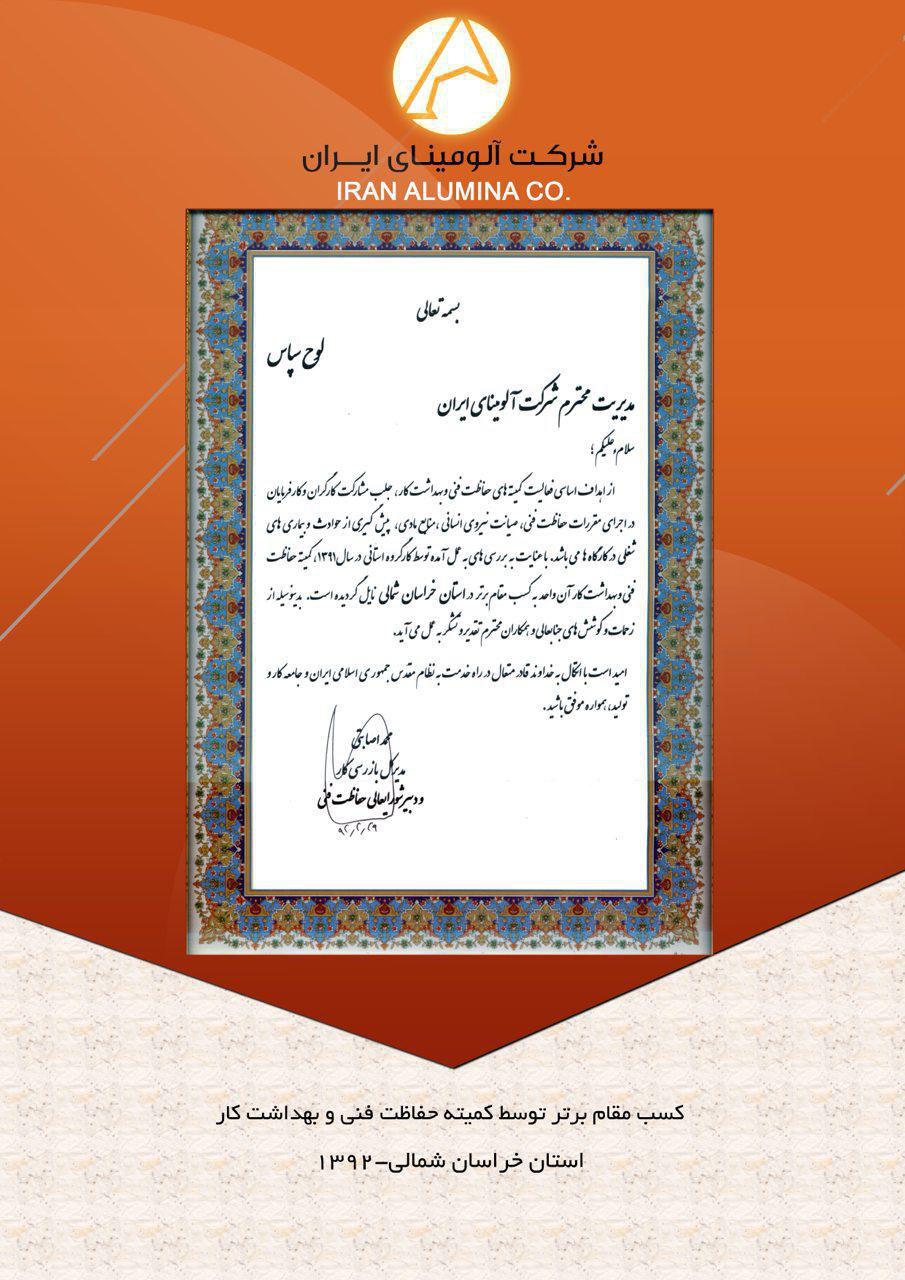 شرکت آلومینای ایران
IRAN ALUMINA CO.
بسمه تعالی
لوح سپاس
مدیریت محترم شرکت آلومینای ایران
سلام علیکم؛
از اهداف اساسی فعالیت کمیته های حفاظت فنی و بهداشت کار، جلب مشارکت کارگران و کارفرمایان
در اجرای مقررات حفاظت فنی، صیانت نیروی انسانی، منابع مادی، پیش گیری از حوادث و بیماری های
شغلی در کارگاه ها می باشد. با عنایت به بررسی های به عمل آمده توسط کارگروه استانی در سال ۱۳۹۱، کمیته حفاظت
فنی و بهداشت کار آن واحد به کسب مقام برتر در استان خراسان شمالی نایل گردیده است. بدینوسیله از
زحمات و کوشش های جنابعالی و همکاران محترم تقدیر و تشکر به عمل می آید.
امید است با اتکال به خداوند قادر متعال در راه خدمت به نظام مقدس جمهوری اسلامی ایران و جامعه کار و
تولید، همواره موفق باشید.
محمد اصابتی
مدیرکل بازرسی کار
و دبیر شورایعالی حفاظت فنی
۹۲٫۲٫۲۹
کسب مقام برتر توسط کمیته حفاظت فنی و بهداشت کار
استان خراسان شمالی-۱۳۹۲